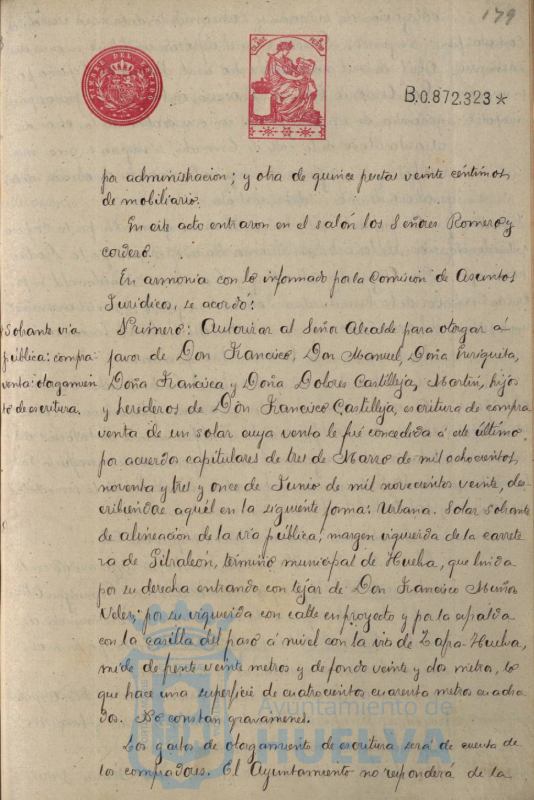 179
TIMBRE DEL ESTADO
CLASE
B.0.872.323*
por administracion; y otra de quince pesetas veinte céntimos
de mobiliario.
En este acto entraron en el salón los Señores Romero y
cordero.
En armonia con lo informado por la Comisión de Asuntos
Juridicos, se acordó:
Sobrante via
pública: compra-
venta: otorgamien
to de escritura.
Primero: Autorizar al Señor Alcalde para otorgar á
favor de Don Francisco, Don Manuel, Doña Enriqueta,
Doña Francisca y Doña Dolores Castilleja, Martin, hijos
y herederos de Don Francisco Castilleja, escritura de compra
venta de un solar cuya venta le fué concedida á este último
por acuerdos capitulares de tres de Marzo de mil ochocientos,
noventa y tres y once de Junio de mil novecientos veinte, des-
cribiendose aquél en la siguiente forma: Urbana. Solar sobrante
de alineación de la via pública, margen izquierda de la carrete
ra de Gibraleón, termino municipal de Huelva, que linda
por su derecha entrando con tejar de Don Francisco Muñoz
Velez; por su izquierda con calle en proyecto y por la espalda
con la casilla del paso á nivel con la via de Zafra-Huelva,
mide de frente veinte metros y de fondo veinte y dos metros, lo
que hace una superficie de cuatrocientos cuarenta metros cuadra
dos. No constan gravamenes.
Los gastos de otorgamiento de escritura será de cuenta de
los compradores. El Ayuntamiento no responderá de la
Ayuntamiento de
HUELVA